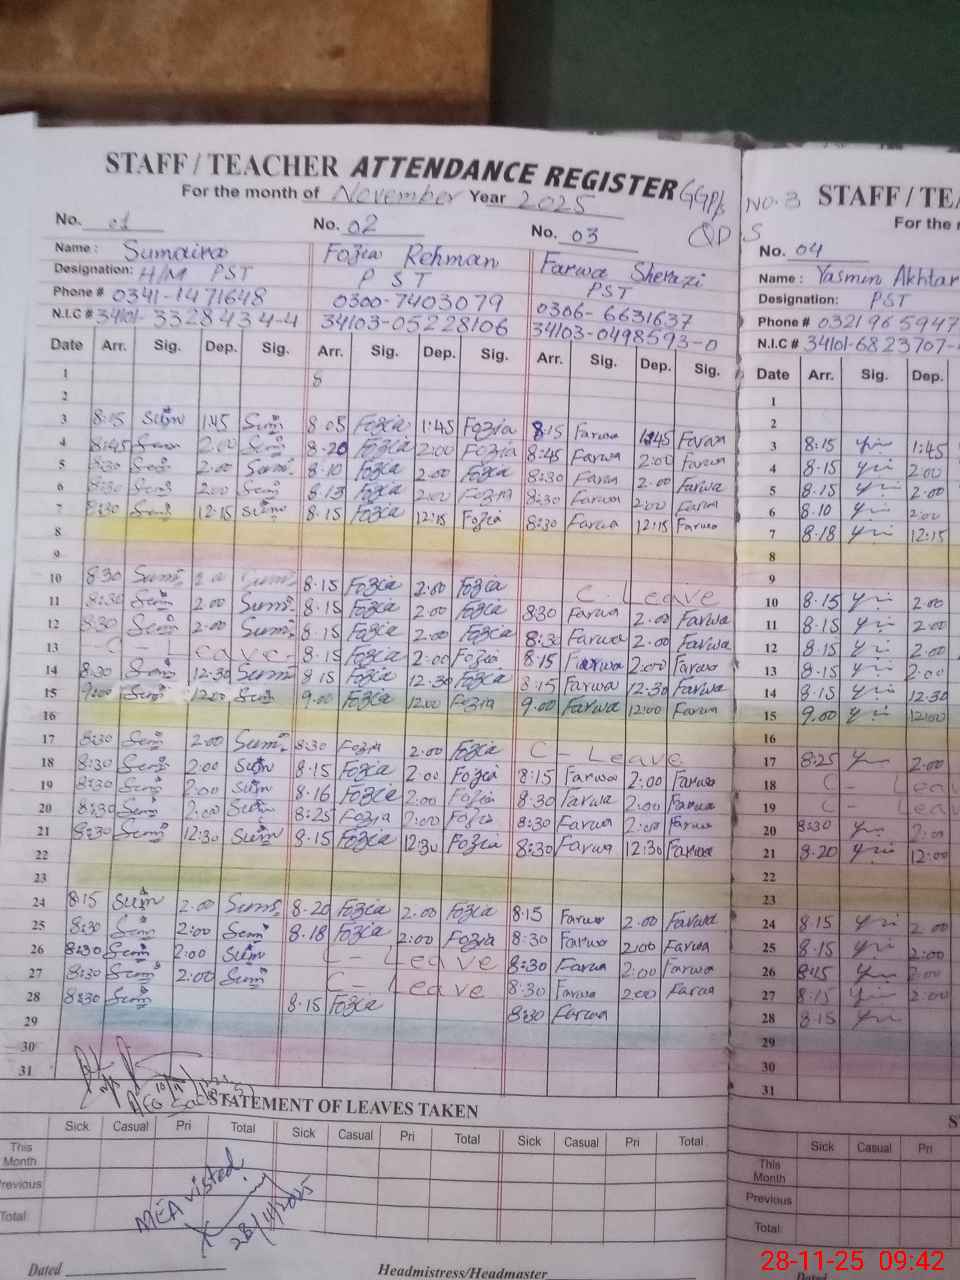 STAFF / TEACHER ATTENDANCE REGISTER GGP/s
For the month of November Year 2025
No. 01 No. 02 No. 03
Name : Sumaira Fozia Rehman Farwa Sherazi
Designation: H/M PST PST PST
Phone # 0341-1471648 0300-7403079 0306-6631637
N.I.C # 34101-3328434-4 34103-05228106 34103-0498593-0
Date Arr. Sig. Dep. Sig. Arr. Sig. Dep. Sig. Arr. Sig. Dep. Sig.
1 8
2
3 8:15 Sum 1:45 Sum 8.05 Fozia 1:45 Fozia 8:15 Farwa 1:45 Farwa
4 8:45 2.00 Sum 8.20 Fozia 2:00 Fozia 8:45 Farwa 2:00 Farwa
5 8:30 Sum 2.00 Sum 8.10 Fozia 2.00 Fozia 8:30 Farwa 2.00 Farwa
6 8:30 Sum 2.00 Sum 8.15 Fozia 2:00 Fozia 8:30 Farwa 2:00 Farwa
7 8:30 Sum 12:15 Sum 8.15 Fozia 12:15 Fozia 8:30 Farwa 12:15 Farwa
8
9
10 8:30 Sum Sum 8.15 Fozia 2.00 Fozia C. Leave
11 8:30 Sum 2.00 Sum 8.15 Fozia 2.00 Fozia 8:30 Farwa 2.00 Farwa
12 8:30 Sum 2.00 Sum 8.15 Fozia 2.00 Fozia 8:30 Farwa 2.00 Farwa
13 C - Leave 8.15 Fozia 2.00 Fozia 8:15 Farwa 2:00 Farwa
14 8:30 Sum 12:30 Sum 8.15 Fozia 12.30 Fozia 8:15 Farwa 12.30 Farwa
15 9:00 Sum 12:00 Sum 9.00 Fozia 12:00 Fozia 9.00 Farwa 12:00 Farwa
16
17 8:30 Sum 2:00 Sum 8:30 Fozia 2.00 Fozia C - Leave
18 8:30 Sum 2:00 Sum 8.15 Fozia 2.00 Fozia 8:15 Farwa 2:00 Farwa
19 8:30 Sum 2:00 Sum 8.16 Fozia 2:00 Fozia 8:30 Farwa 2:00 Farwa
20 8:30 Sum 2:00 Sum 8:25 Fozia 2:00 Fozia 8:30 Farwa 2:00 Farwa
21 8:30 Sum 12:30 Sum 8.15 Fozia 12:30 Fozia 8:30 Farwa 12:30 Farwa
22
23
24 8:15 Sum 2.00 Sum 8.20 Fozia 2.00 Fozia 8:15 Farwa 2.00 Farwa
25 8:30 Sum 2:00 Sum 8.18 Fozia 2:00 Fozia 8:30 Farwa 2:00 Farwa
26 8:30 Sum 2:00 Sum C - Leave 8:30 Farwa 2:00 Farwa
27 8:30 Sum 2:00 Sum C - Leave 8:30 Farwa 2:00 Farwa
28 8:30 Sum 8.15 Fozia 8:30 Farwa
29
30
31
STATEMENT OF LEAVES TAKEN
Sick Casual Pri Total Sick Casual Pri Total Sick Casual Pri Total
This
Month
Previous
Total
MEA visited
28/11/2025
Dated Headmistress/Headmaster
No. 3 STAFF / TEA
For the
No. 04
Name : Yasmin Akhtar
Designation: PST
Phone # 0321965947
N.I.C # 34101-6823707-
Date Arr. Sig. Dep.
1
2
3 8:15 1:45
4 8.15 2:00
5 8.15 2:00
6 8.10 2:00
7 8.18 12:15
8
9
10 8.15 2.00
11 8.15 2.00
12 8.15 2.00
13 8.15 2:00
14 8.15 12:30
15 9.00 12:00
16
17 8:25 2.00
18 C - Leav
19 C - Leav
20 8:30 2:00
21 8.20 12:00
22
23
24 8.15 2.00
25 8.15 2:00
26 8:15 2:00
27 8:15 2:00
28 8.15
29
30
31
Sick Casual Pri
This
Month
Previous
Total
28-11-25 09:42